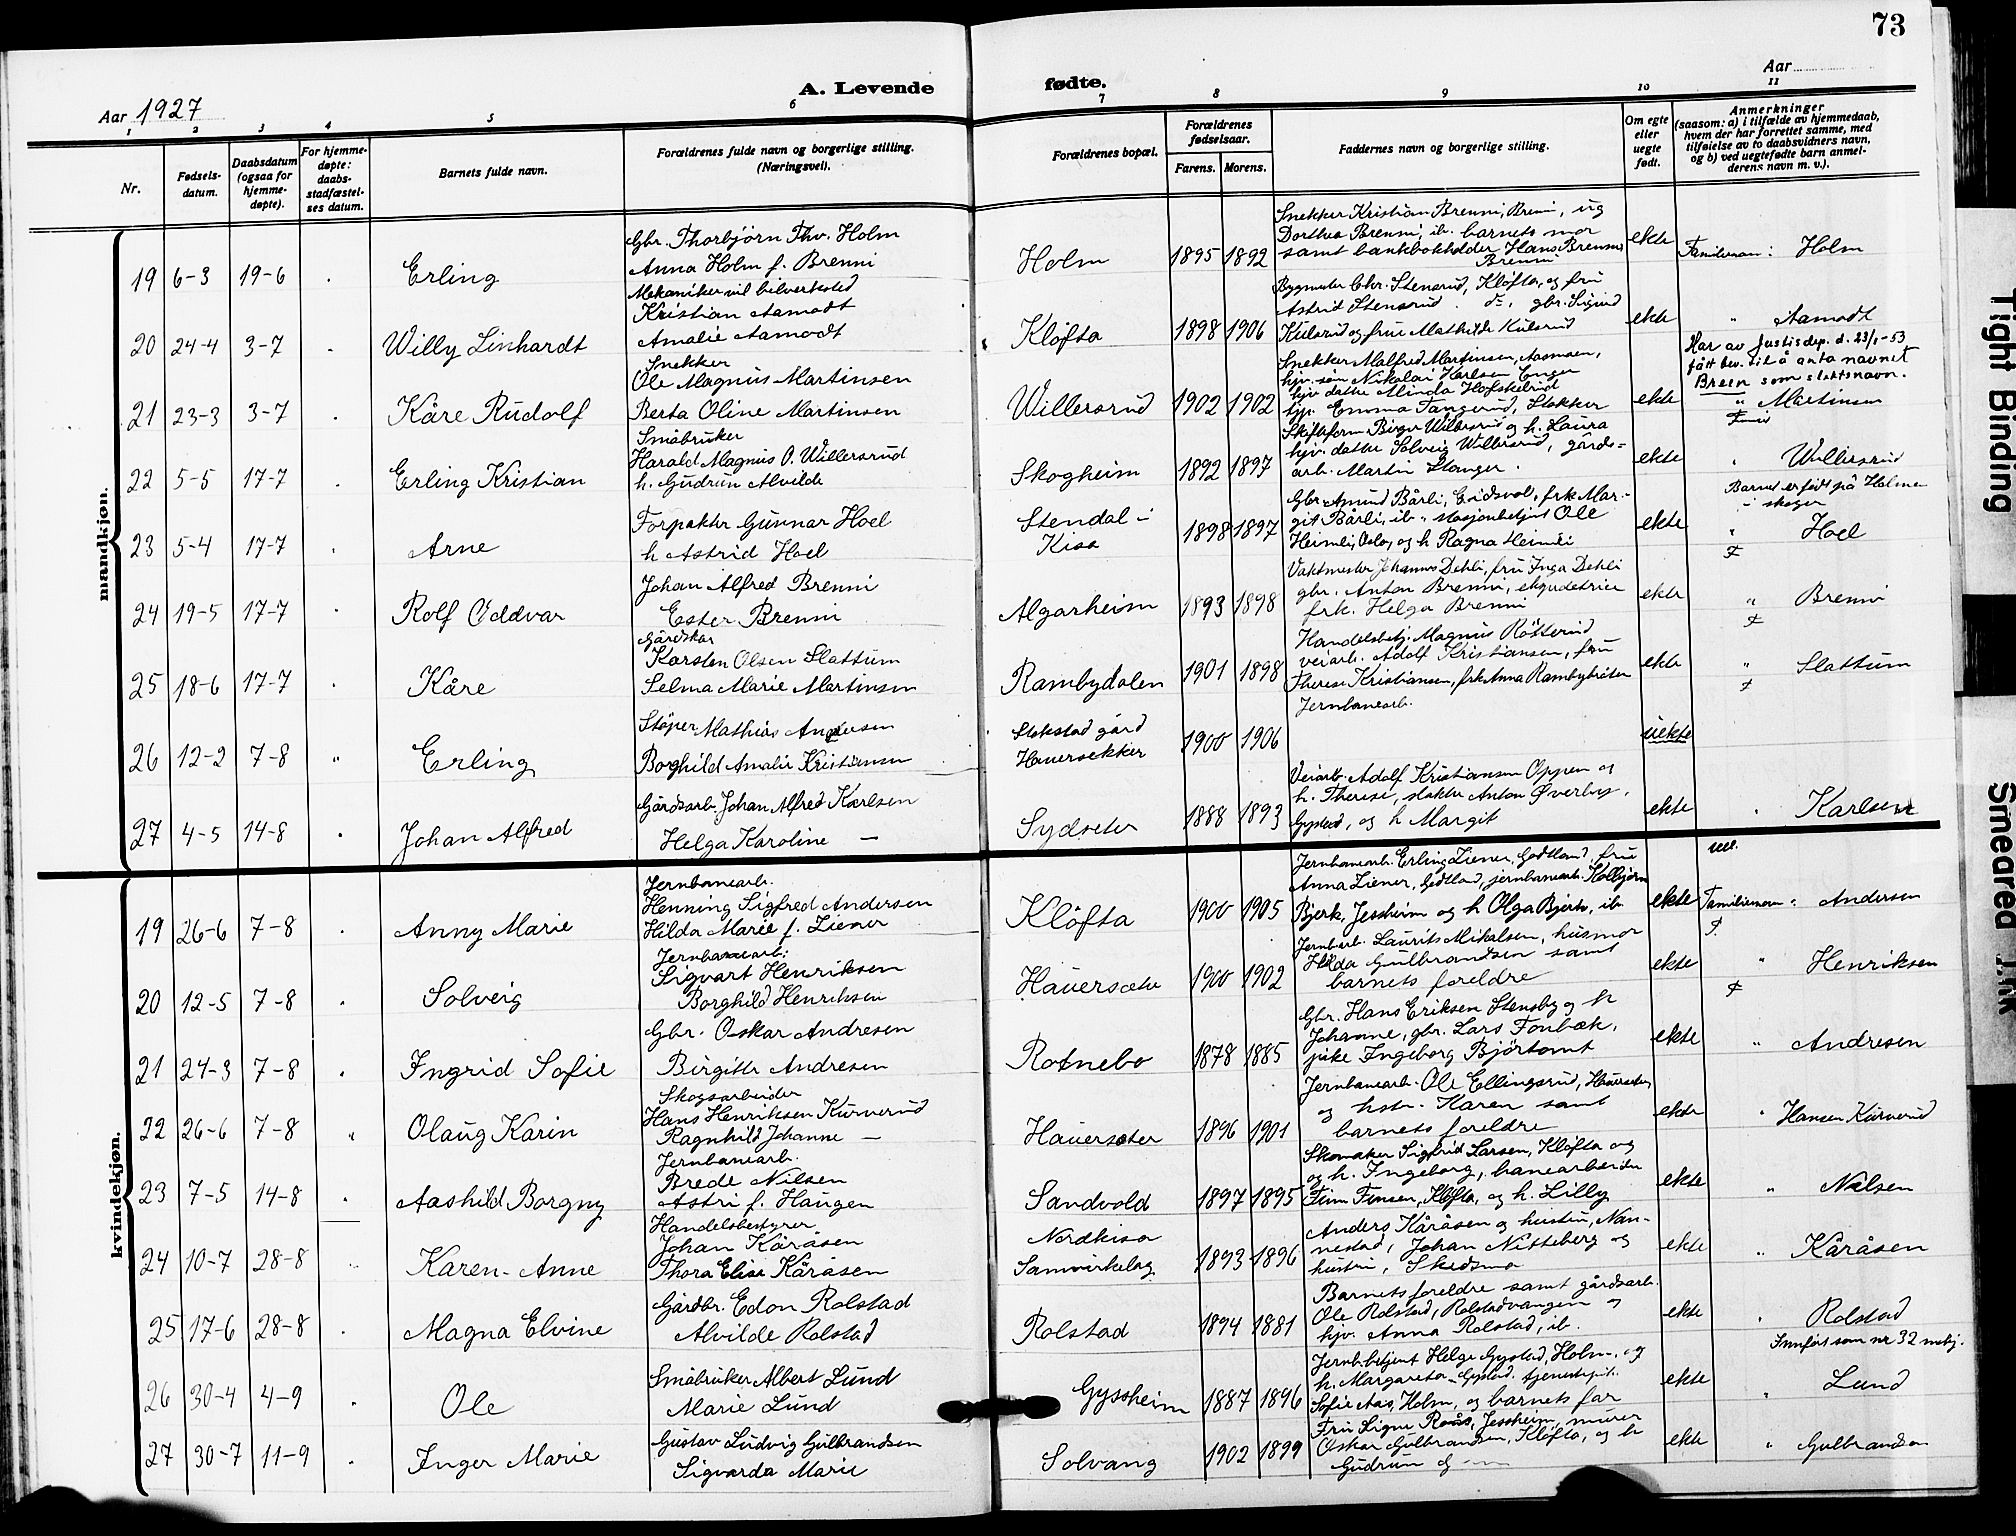 73
A. Levende fødte.
Aar 1927
Aar
1 2 3 4 5 6 7 8 9 10 11
Nr.
Fødsels-datum.
Daabsdatum (ogsaa for hjemme-døpte).
For hjemme-døpte: daabs-stadfæstel-ses datum.
Barnets fulde navn.
Forældrenes fulde navn og borgerlige stilling. (Næringsvei).
Forældrenes bopæl.
Forældrenes fødselsaar.
Farens. Morens.
Faddernes navn og borgerlige stilling.
Om egte eller uegte født.
Anmerkninger (saasom: a) i tilfælde av hjemmedaab, hvem der har forrettet samme, med tilføielse av to daabsvidners navn, og b) ved uegtefødte barn anmel-derens navn m. v.).
mandkjøn.
Gbr. Thorbjørn Thv. Holm
Anna Holm f. Brenni
19 6-3 19-6 Erling Holm 1895 1892
Snekker Kristian Brenni, Brenni, ug
Dorthea Brenni, ib. barnets mor
samt bankbokholder Hans Brenni
Brenni
ekte Familienavn: Holm
Kristian Aamodt
Amalie Aamodt
20 24-4 3-7 Willy Linhardt Kløfta 1898 1906
Bygmester Chr. Stensrud, Kløfta, og fru
Astrid Stensrud do, gbr. Sigurd
Kulsrud og frue Mathilde Kulsrud
ekte " Aamodt
Har av Justisdep. d. 23/1-53
fått bev. til å anta navnet
Breen som slektsnavn.
Snekker
Ole Magnus Martinsen
Berta Oline Martinsen
21 23-3 3-7 Kåre Rudolf Willersrud 1902 1902
Snekker Malfred Martinsen, Aasmoen,
hjv. søn Nikolai Karlsen Enger
hjv datter Minda Hofskelrud
hjv. Emma Tangerud, Stokker
ekte " Martinsen
Småbruker
Harald Magnus O. Willersrud
h. Gudrun Alvilde
22 5-5 17-7 Erling Kristian Skogheim 1892 1897
Skifteform. Birger Willersrud og h. Laura
hjv. datter Solveig Willersrud, gårds-
arb. Martin Stanger.
ekte " Willersrud
Barnet er født på Holme
i skogen
Forpakter Gunnar Hoel
h Astrid Hoel
23 5-4 17-7 Arne Stendal i
Kisa 1898 1897
Gbr. Amund Bårli, Eidsvol, frk Mar-
git Bårli, ib. stasjonbetjent Ole
Heimli, Oslo, og h Ragna Heimli
ekte " Hoel
Johan Alfred Brenni
Ester Brenni
24 19-5 17-7 Rolf Oddvar Algarheim 1893 1898
Vaktmester Johannes Dehli, fru Inga Dehli
gbr. Anton Brenni, ekspeditrice
frk. Helga Brenni
ekte " Brenni
Gårdskar
Karsten Olsen Slattum
Selma Marie Martinsen
25 18-6 17-7 Kåre Rambydalen 1901 1898
Handelsbetj. Magnus Røtterud
veiarb. Adolf Kristiansen, fru
Therese Kristiansen, frk Anna Rambybråten
Jernbanearb.
ekte " Slattum
Støper Mathias Andersen
Borghild Amalie Kristiansen
26 12-2 7-8 " Erling Slokstad gård
Hauersekker 1900 1906 uekte
Gårdsarb. Johan Alfred Karlsen
Helga Karoline —
27 4-5 14-8 Johan Alfred Sydseter 1888 1893
Veiarb. Adolf Kristiansen Oppen og
h. Therese, slakter Anton Øverbys,
Gystad, og h Margit
ekte " Karlsen
kvindekjøn.
Jernbanearb.
Henning Sigfred Andersen
Hilda Marie f. Ziener
19 26-6 7-8 Anny Marie Kløfta 1900 1905
Jernbanearb. Erling Ziener, Gotland, fru
Anna Ziener, Gotland, jernbanearb. Kolbjørn
Bjerk, Jessheim og h Olga Bjerk, ib
ekte Familienavn: Andersen
Jernbanearb.
Sigvart Henriksen
Borghild Henriksen
20 12-5 7-8 Solveig Hauerseter 1900 1902
Jernbarb. Laurits Mikalsen, husmor
Hilda Gulbrandsen samt
barnets foreldre
ekte " Henriksen
Gbr. Oskar Andresen
Birgitte Andresen
21 24-3 7-8 Ingrid Sofie Rotnebo 1878 1885
Gbr. Hans Eriksen Stensby og h
Johanne, gbr. Lars Fonbæk,
pike Ingeborg Bjørtomt
ekte " Andresen
Skogsarbeider
Hans Henriksen Kurverud
Ragnhild Johanne —
22 26-6 7-8 " Olaug Karin Hauerseter 1896 1901
Jernbanearb. Ole Ellingsrud, Hauerseter,
og hstr. Karen samt
barnets foreldre
ekte " Hansen Kurverud
Jernbanearb.
Brede Nilsen
Astri f. Haugen
23 7-5 14-8 Aashild Borgny Sandvold 1897 1895
Skomaker Sigfrid Larsen, Kløfta og
og h. Ingeborg, banearbeider
Finn Finsen, Kløfta, og h. Lilly
ekte " Nilsen
Handelsbestyrer
Johan Kåråsen
Thora Elise Kåråsen
24 10-7 28-8 Karen-Anne Nordkisa
Samvirkelag 1893 1896
Anders Kåråsen og hustru, Nan-
nestad, Johan Nitteberg og
hustru, Skedsmo
ekte " Kåråsen
Gårdbr. Edon Rolstad
Alvilde Rolstad
25 17-6 28-8 Magna Elvine Rolstad 1894 1881
Barnets foreldre samt gårdsarb.
Ole Rolstad, Rolstadvangen og
hjv. Anna Rolstad, ib.
ekte " Rolstad
Innført som nr 32 mkj.
Småbruker Albert Lund
Marie Lund
26 30-4 4-9 Ole Gyssheim 1887 1896
Jernb.betjent Helge Gystad, Holm, og
h. Margareta Gystad, tjenestepit.
Sofie Aas, Holm, og barnets far
ekte " Lund
Gustav Ludvig Gulbrandsen
Sigvarda Marie
27 30-7 11-9 Inger Marie Solvang 1902 1899
Fru Signe Roås, Jessheim, murer
Oskar Gulbrandsen, Kløfta, og h
Gudrun G
ekte " Gulbrandsen
Tight Binding
Smeared Ink